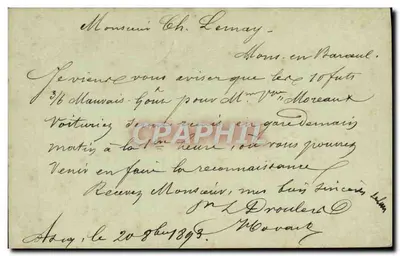 Monsieur Ch. Lemay.
Mons en Baroeul.
Je viens vous aviser que les 10 futs
3/6 Mauvais Goûts pour Mme Vve Moreaux
Voiturier seront en gare demain
matin à la 1ère heure, où vous pourrez
Venir en faire la reconnaissance.
Recevez Monsieur, mes bien sincères
Pr L Droulers
Ascq, le 20 8bre 1893.
CPAPHIL.com